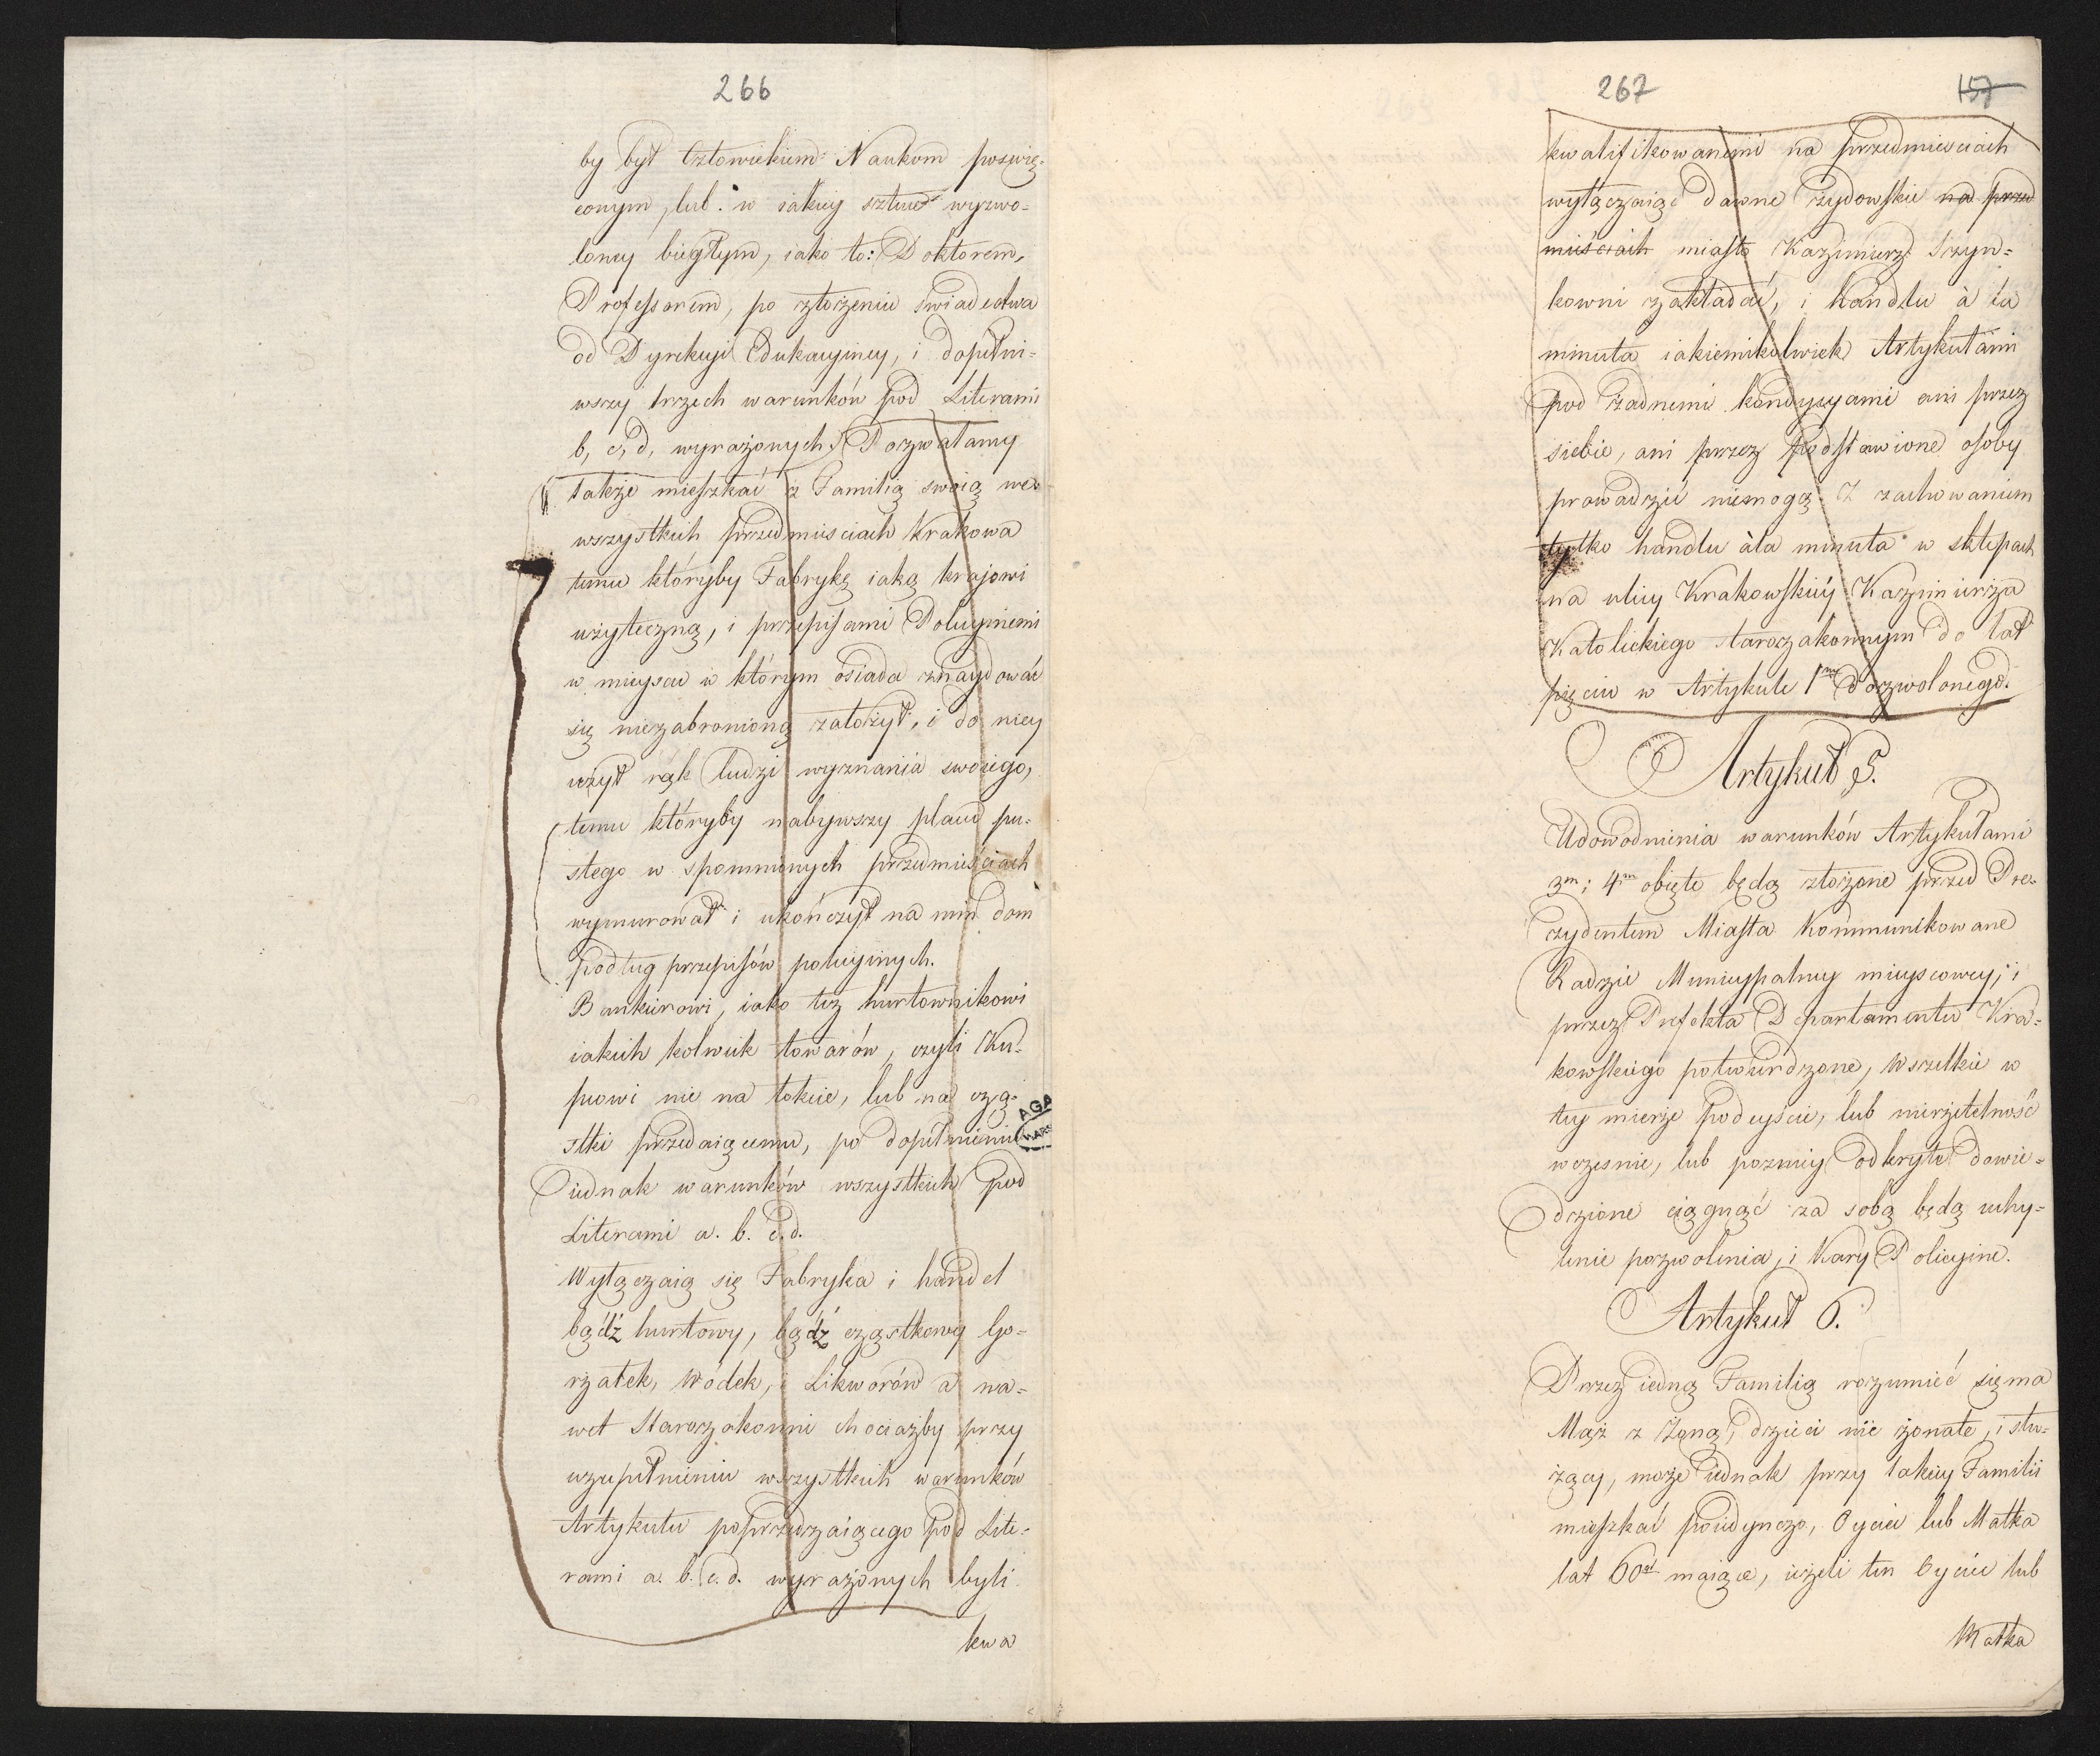 266
by był Człowiekiem Naukom poswię-
conym, lub w iakiey sztuce wyzwo-
loney biegłym, iako to: Doktorem,
Professorem, po złożeniu swiadectwa
od Dyrekcyi Edukacyiney, i dopełni-
wszy trzech warunków pod Literami
b, c, d, wyrażonych. Pozwalamy
także mieszkać z Familią swoią we
wszystkich przedmiesciach Krakowa
temu któryby Fabrykę iaką krajowi
użyteczną, i przepisami Policyinemi
w mieyscu w którym osiada znaydować
się niezabronioną założył, i do niey
użył rąk ludzi wyznania swoiego,
temu któryby nabywszy placu pu-
stego w spomnionych przedmieściach
wymurował i ukończył na nim dom
podług przepisów policyinych.
Bankierowi, iako też hurtownikowi
iakich kolwiek towarów, czyli Ku-
pcowi nie na łokcie, lub na czą-
stki przedaiącemu, po dopełnieniu
iednak warunków wszystkich pod
Literami a. b. c. d.
Wyłączaią się Fabryka i handel
bądź hurtowy, bądź cząstkowy Go-
rzałek, Wódek, i Likworów a na-
wet Starozakonni chociażby przy
uzupełnieniu wszystkich warunków
Artykułu poprzedzaiącego pod Lite-
rami a. b. c. d. wyrażonych byli
kwa
AGA
267
157
kwalifikowanemi na przedmiesciach
wyłączaiąc dawne żydowskie na przed
mieściach miasto Kazimierz Szyn-
kowni zakładać, i handlu à la
minuta iakiemikolwiek Artykułami
pod żadnemi kondycyami ani przez
siebie, ani przez podstawione osoby
prowadzić niemogą. Z zachowaniem
tylko handlu àla minuta w sklepach
na ulicy Krakowskiéy Kazimierza
Katolickiego starozakonnym do lat
pięciu w Artykule 1m dozwolonego.
Artykuł 5.
Udowodnienia warunków Artykułami
3m i 4m obięte będą złożone przed Pre-
zydentem Miasta Kommunikowane
Radzie Municypalney mieyscowey, i
przez Prefekta Departamentu Kra-
kowskiego potwierdzone, Wszelkie w
tey mierze podeyście, lub nierzetelność
wczesnie, lub pozniey odkryte dowie-
dzione ciągnąć za sobą będą uchy-
lenie pozwolenia, i Kary Policyine.
Artykuł 6.
Przez iedną Familią rozumieć się ma
Mąż z Żoną, dzieci nie żonate, i słu-
żący, może iednak przy takiey Familii
mieszkać poiedynczo, Oyciec lub Matka
lat 60at maiące, ieżeli ten Oyciec lub
Matka